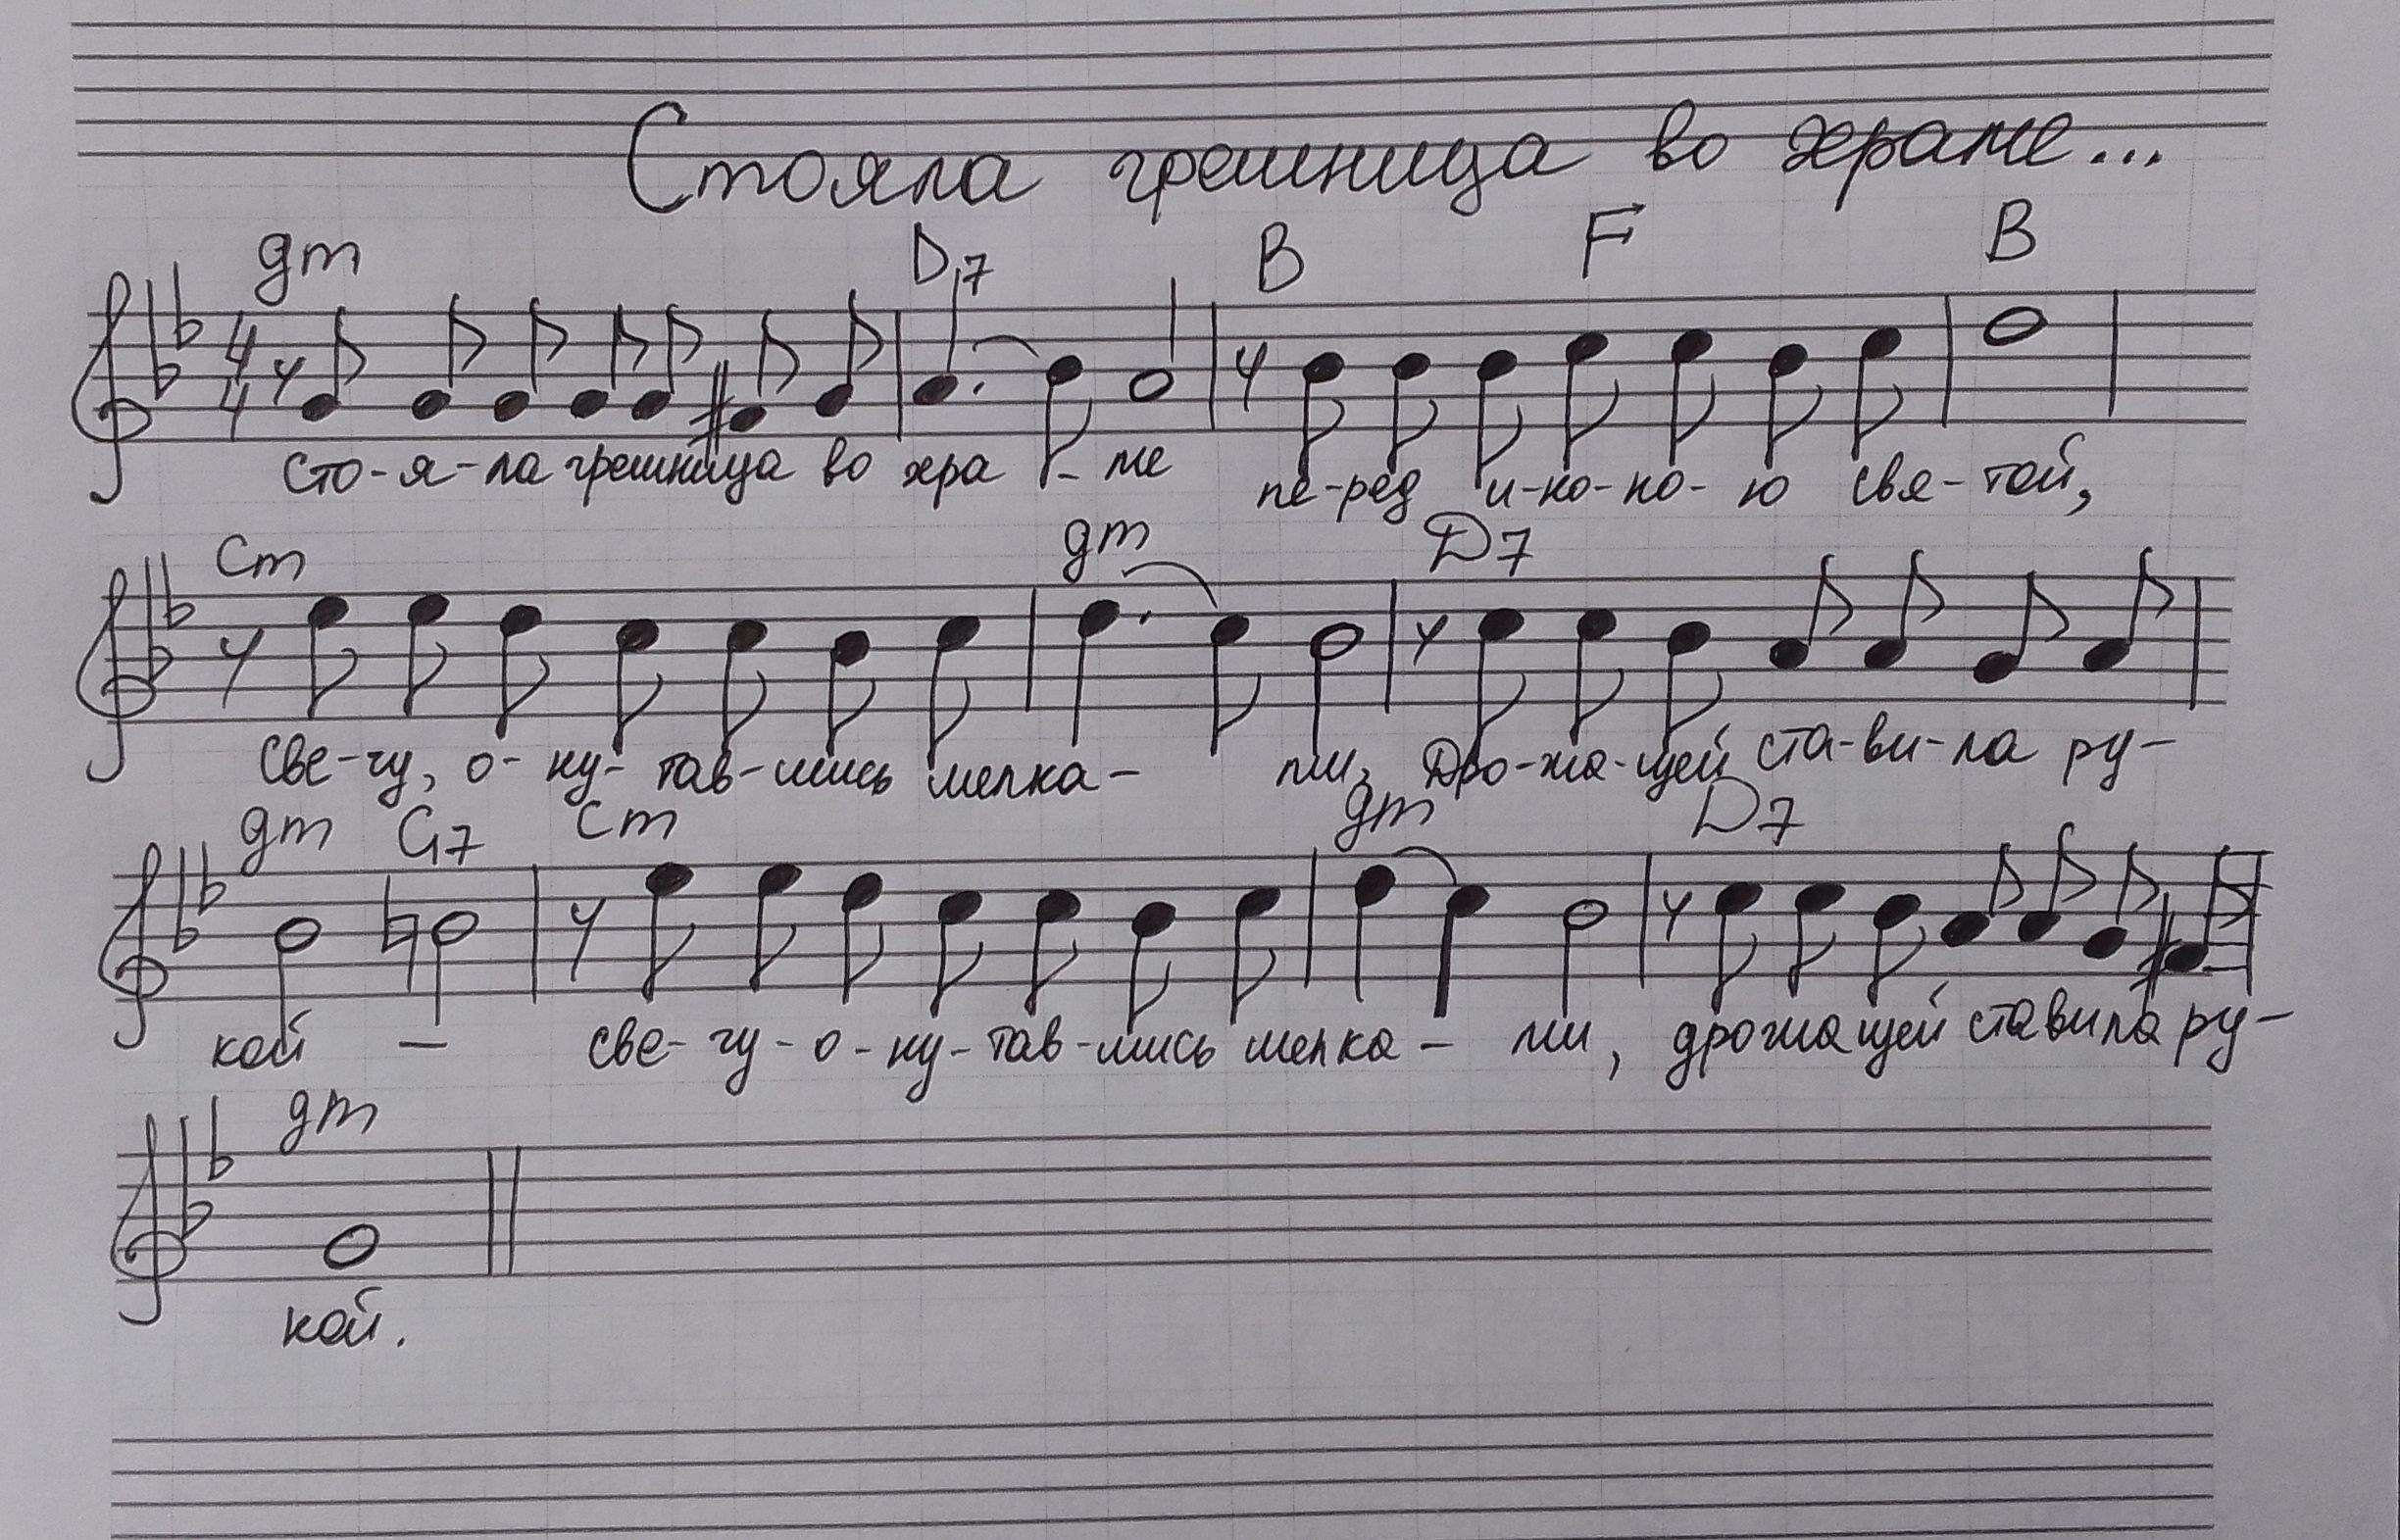 Стояла грешница во храме...
gm D7 B F B
4 4
Сто-я-ла грешница во хра-ме пе-ред и-ко-но-ю свя-той,
Cm gm D7
Све-чу, о-ку-тав-шись мелка- ми, Дро-жа-щей ста-ви-ла ру-
gm G7 Cm gm D7
кой — све-чу-о-ку-тав-шись мелка- ми, дрожащей ставила ру-
gm
кой.